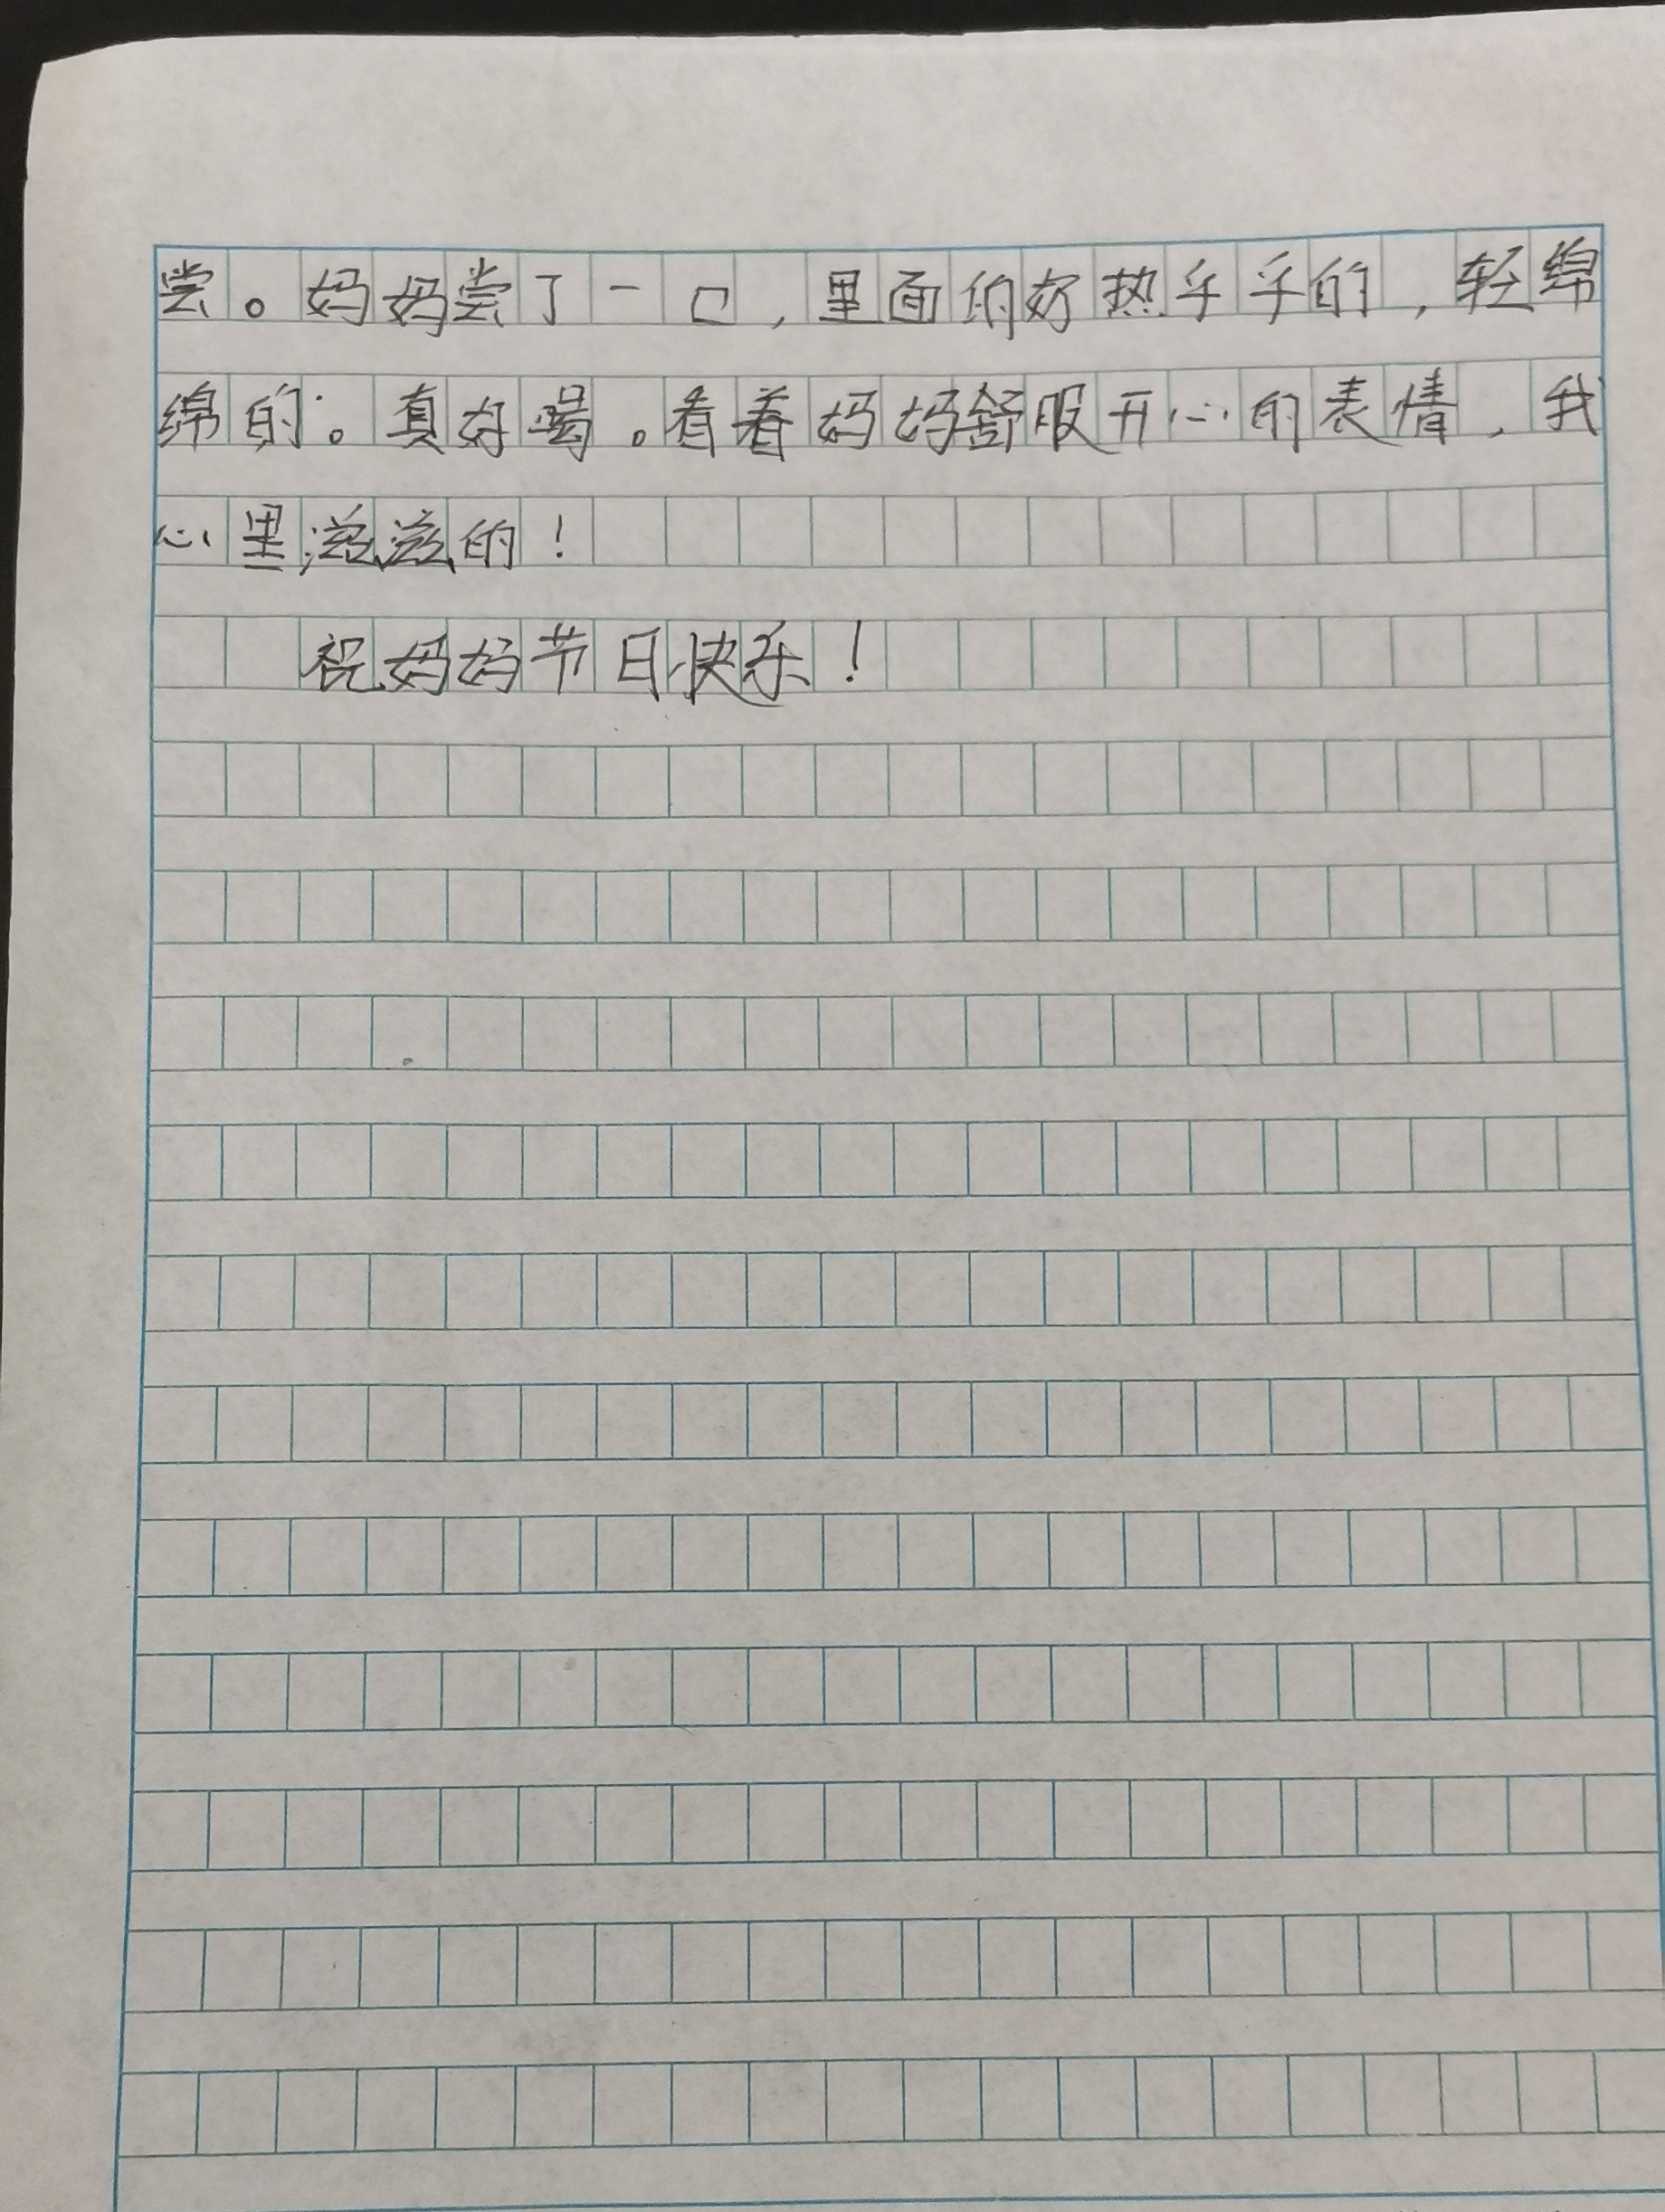 尝。妈妈尝了一口,里面的好热乎乎的,轻绵
绵的。真好喝。看着妈妈舒服开心的表情,我
心里滋滋的!
祝妈妈节日快乐!